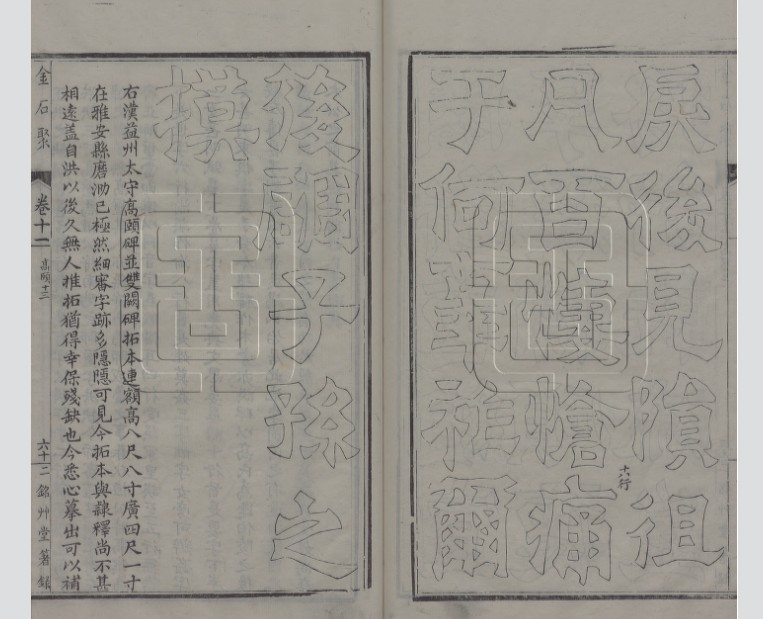 戾後見隕徂
十六行
凡百悽愴痛
于何辜祚爾
後嗣子孫之
摸
右漢益州太守高頤碑並雙闕碑拓本連額高八尺八寸廣四尺一寸
在雅安縣磨泐已極然細審字跡多隱隱可見今拓本與隸釋尚不甚
相遠蓋自洪以後久無人椎拓猶得幸保殘缺也今悉心摹出可以補
金石聚 卷十一 高頤十三 六十二 銘艸堂著錄